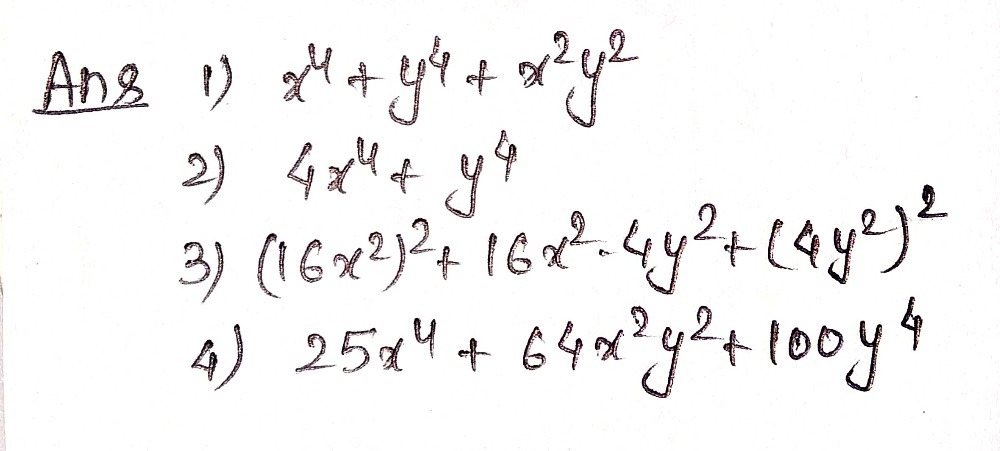 Ans 1) x⁴ + y⁴ + x²y²
2) 4x⁴ + y⁴
3) (16x²)² + 16x² · 4y² + (4y²)²
4) 25x⁴ + 64x²y² + 100y⁴